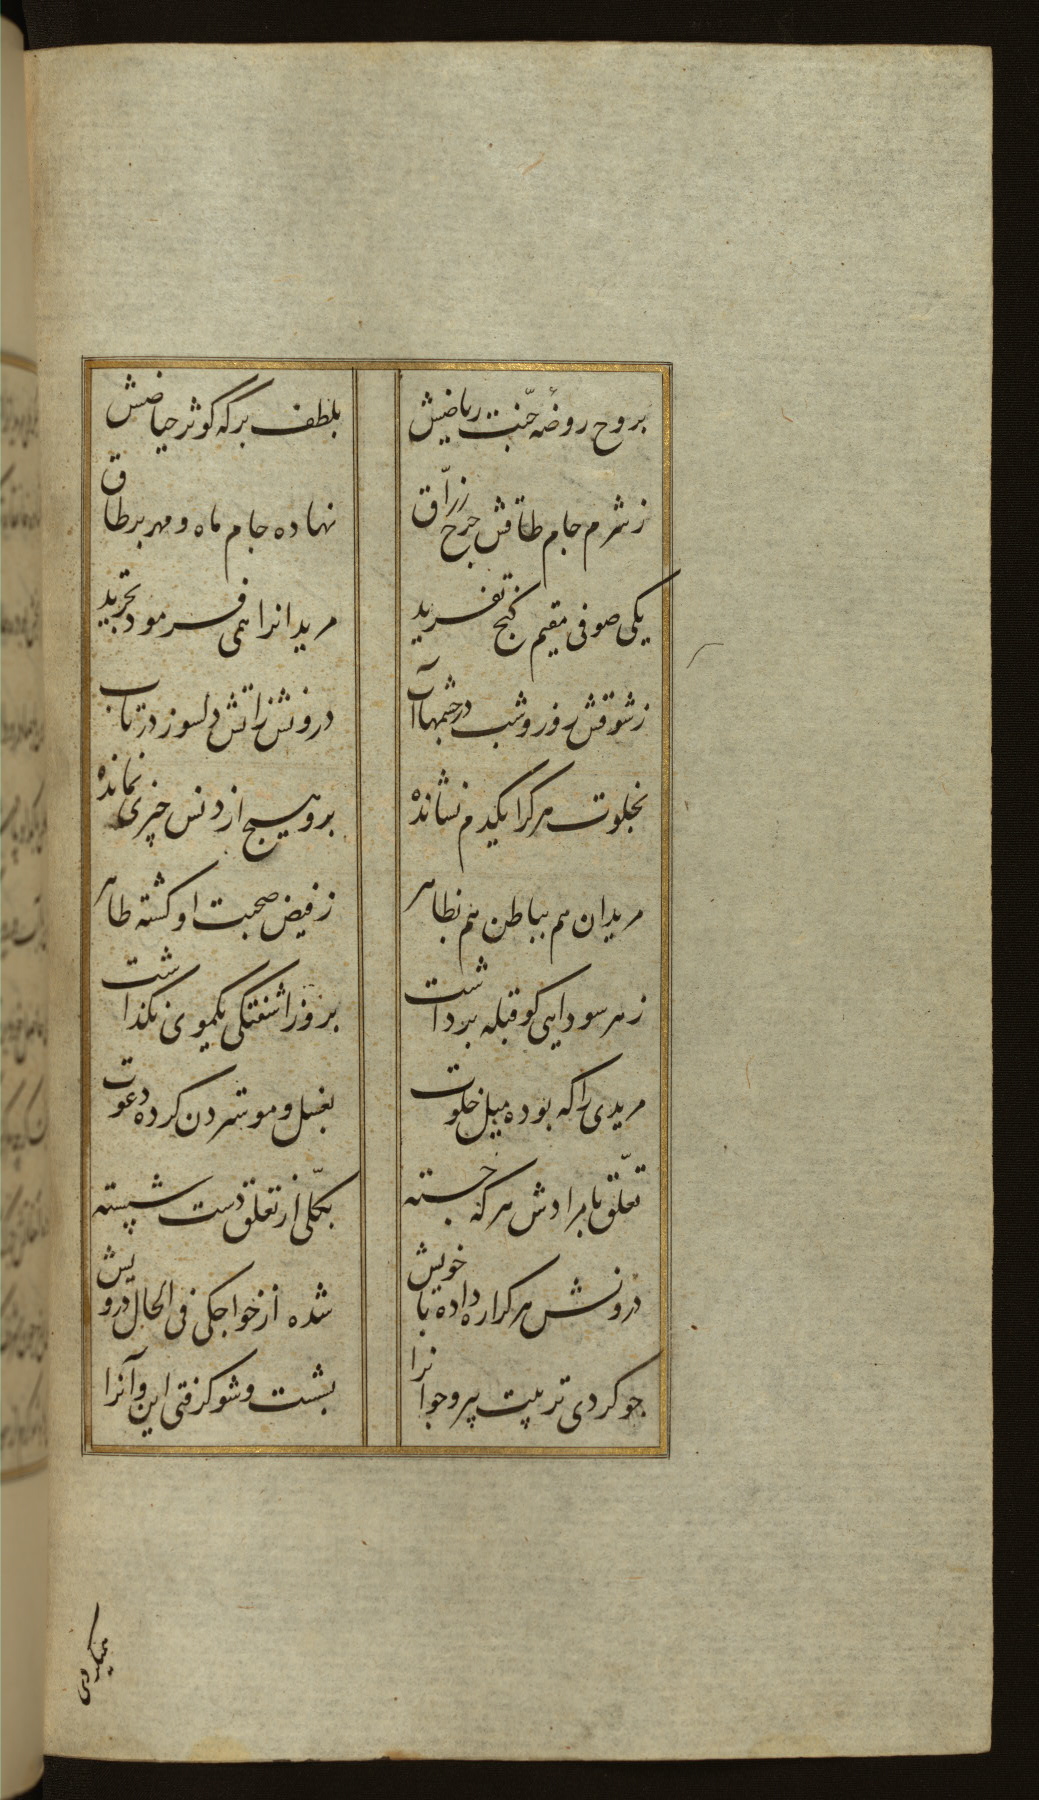 بروح روضهٔ جنّت ریاضیش
بلطف برگه کوثر حیاضیش
ز شرم جام طاقش چرخ زرّاق
نهاده جام ماه و مهر بر طاق
یکی صوفی مقیم کنج تفرید
مریدانرا همی فرمود تجرید
ز شوقش روز و شب در چشمها آب
درونش ز آتش دلسوز در تاب
بخلوت هر کرا یکدم نشانده
برو هیچ از دنس چیزی نمانده
مریدان هم بباطن هم بظاهر
ز فیض صحبت او کشته طاهر
ز هر سودایی کو قبله برداشت
برو ز اشفتکی یکموی نکذاشت
مریدی را که بوده میل خلوت
بغسل و مو ستردن کرده دعوت
تعلّق با مرادش هر که جسته
بکلّی از تعلق دست شسته
درونش هر کرا ره داده با خویش
شده از خواجکی فی الحال درویش
جو کردی تربیت پیر و جوانرا
بشست و شو کرفتی این و آنرا